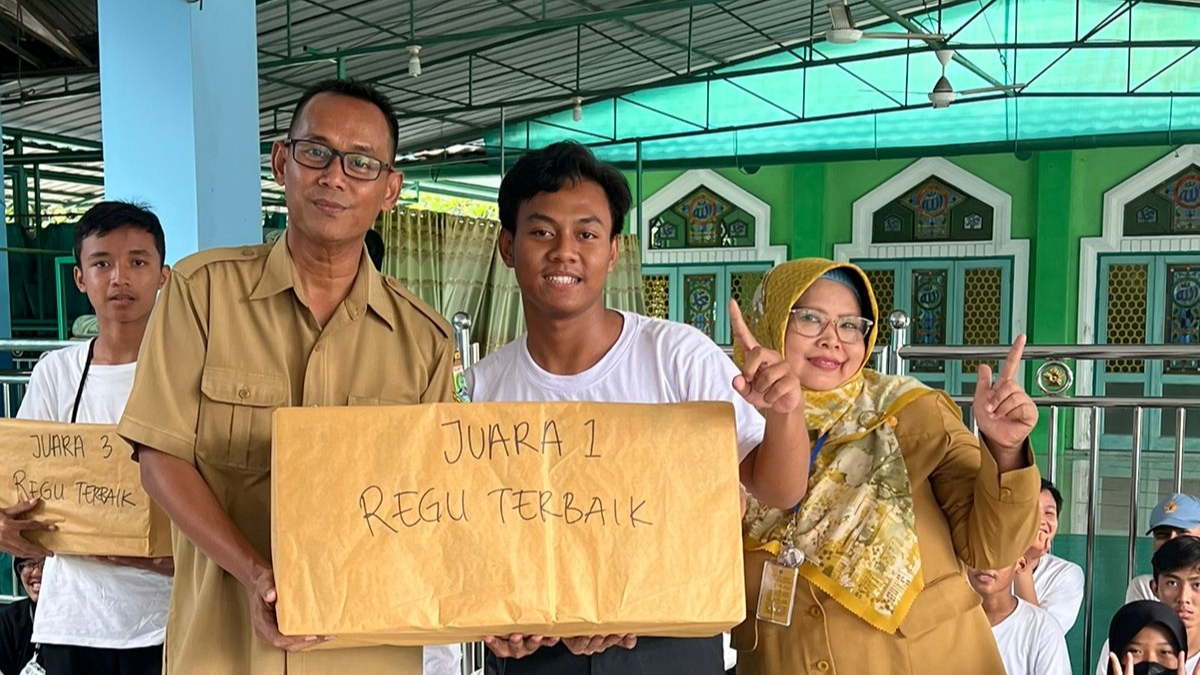 JUARA 3
REGU TERBAIK
JUARA 1
REGU TERBAIK